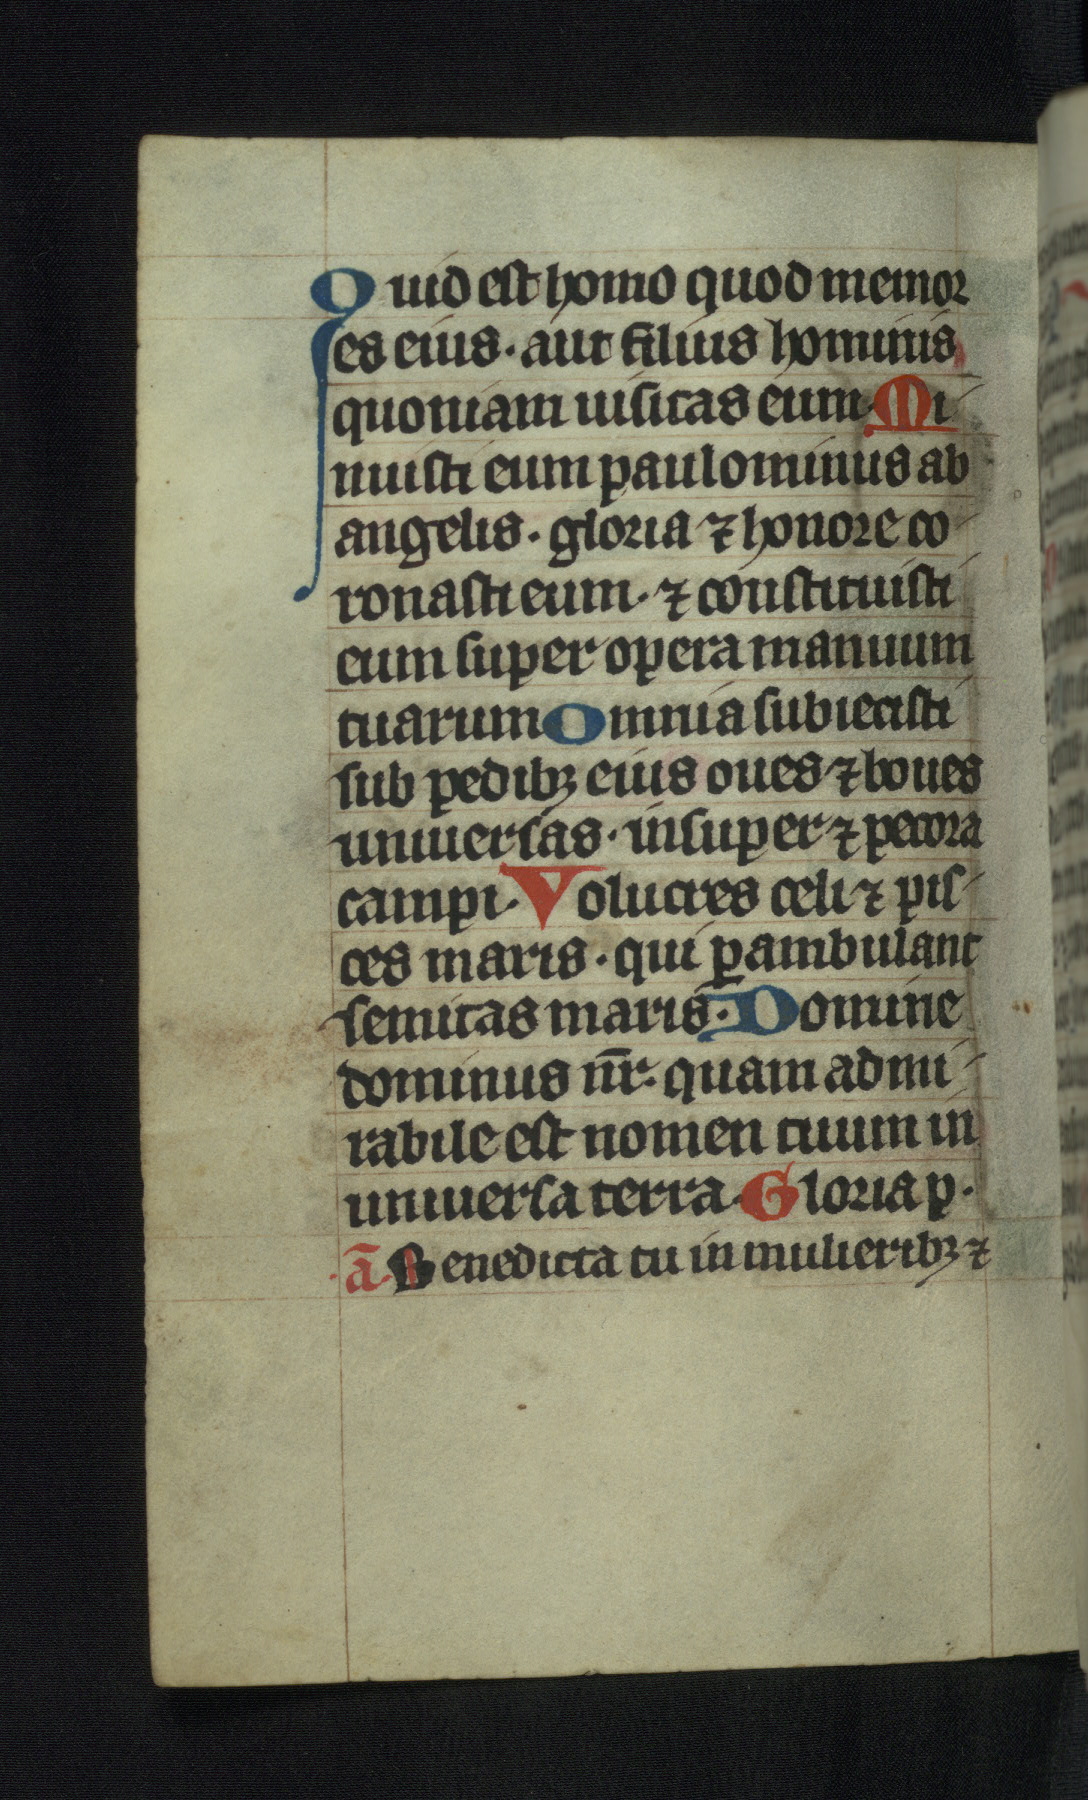 Quid est homo quod memor
es eius · aut filius hominis
quoniam uisitas eum · Mi-
nuisti eum paulominus ab
angelis · gloria ⁊ honore co-
ronasti eum · ⁊ constituisti
eum super opera manuum
tuarum Omnia subiecisti
sub pedibꝫ eius oues ⁊ boues
uniuersas · insuper ⁊ pecora
campi · Volucres celi ⁊ pis-
ces maris · qui ꝑambulant
semitas maris · Domine
dominus nr̄ · quam admi-
rabile est nomen tuum in
uniuersa terra · Gloria p ·
· a᷃ · Benedicta tu in mulieribꝫ ⁊